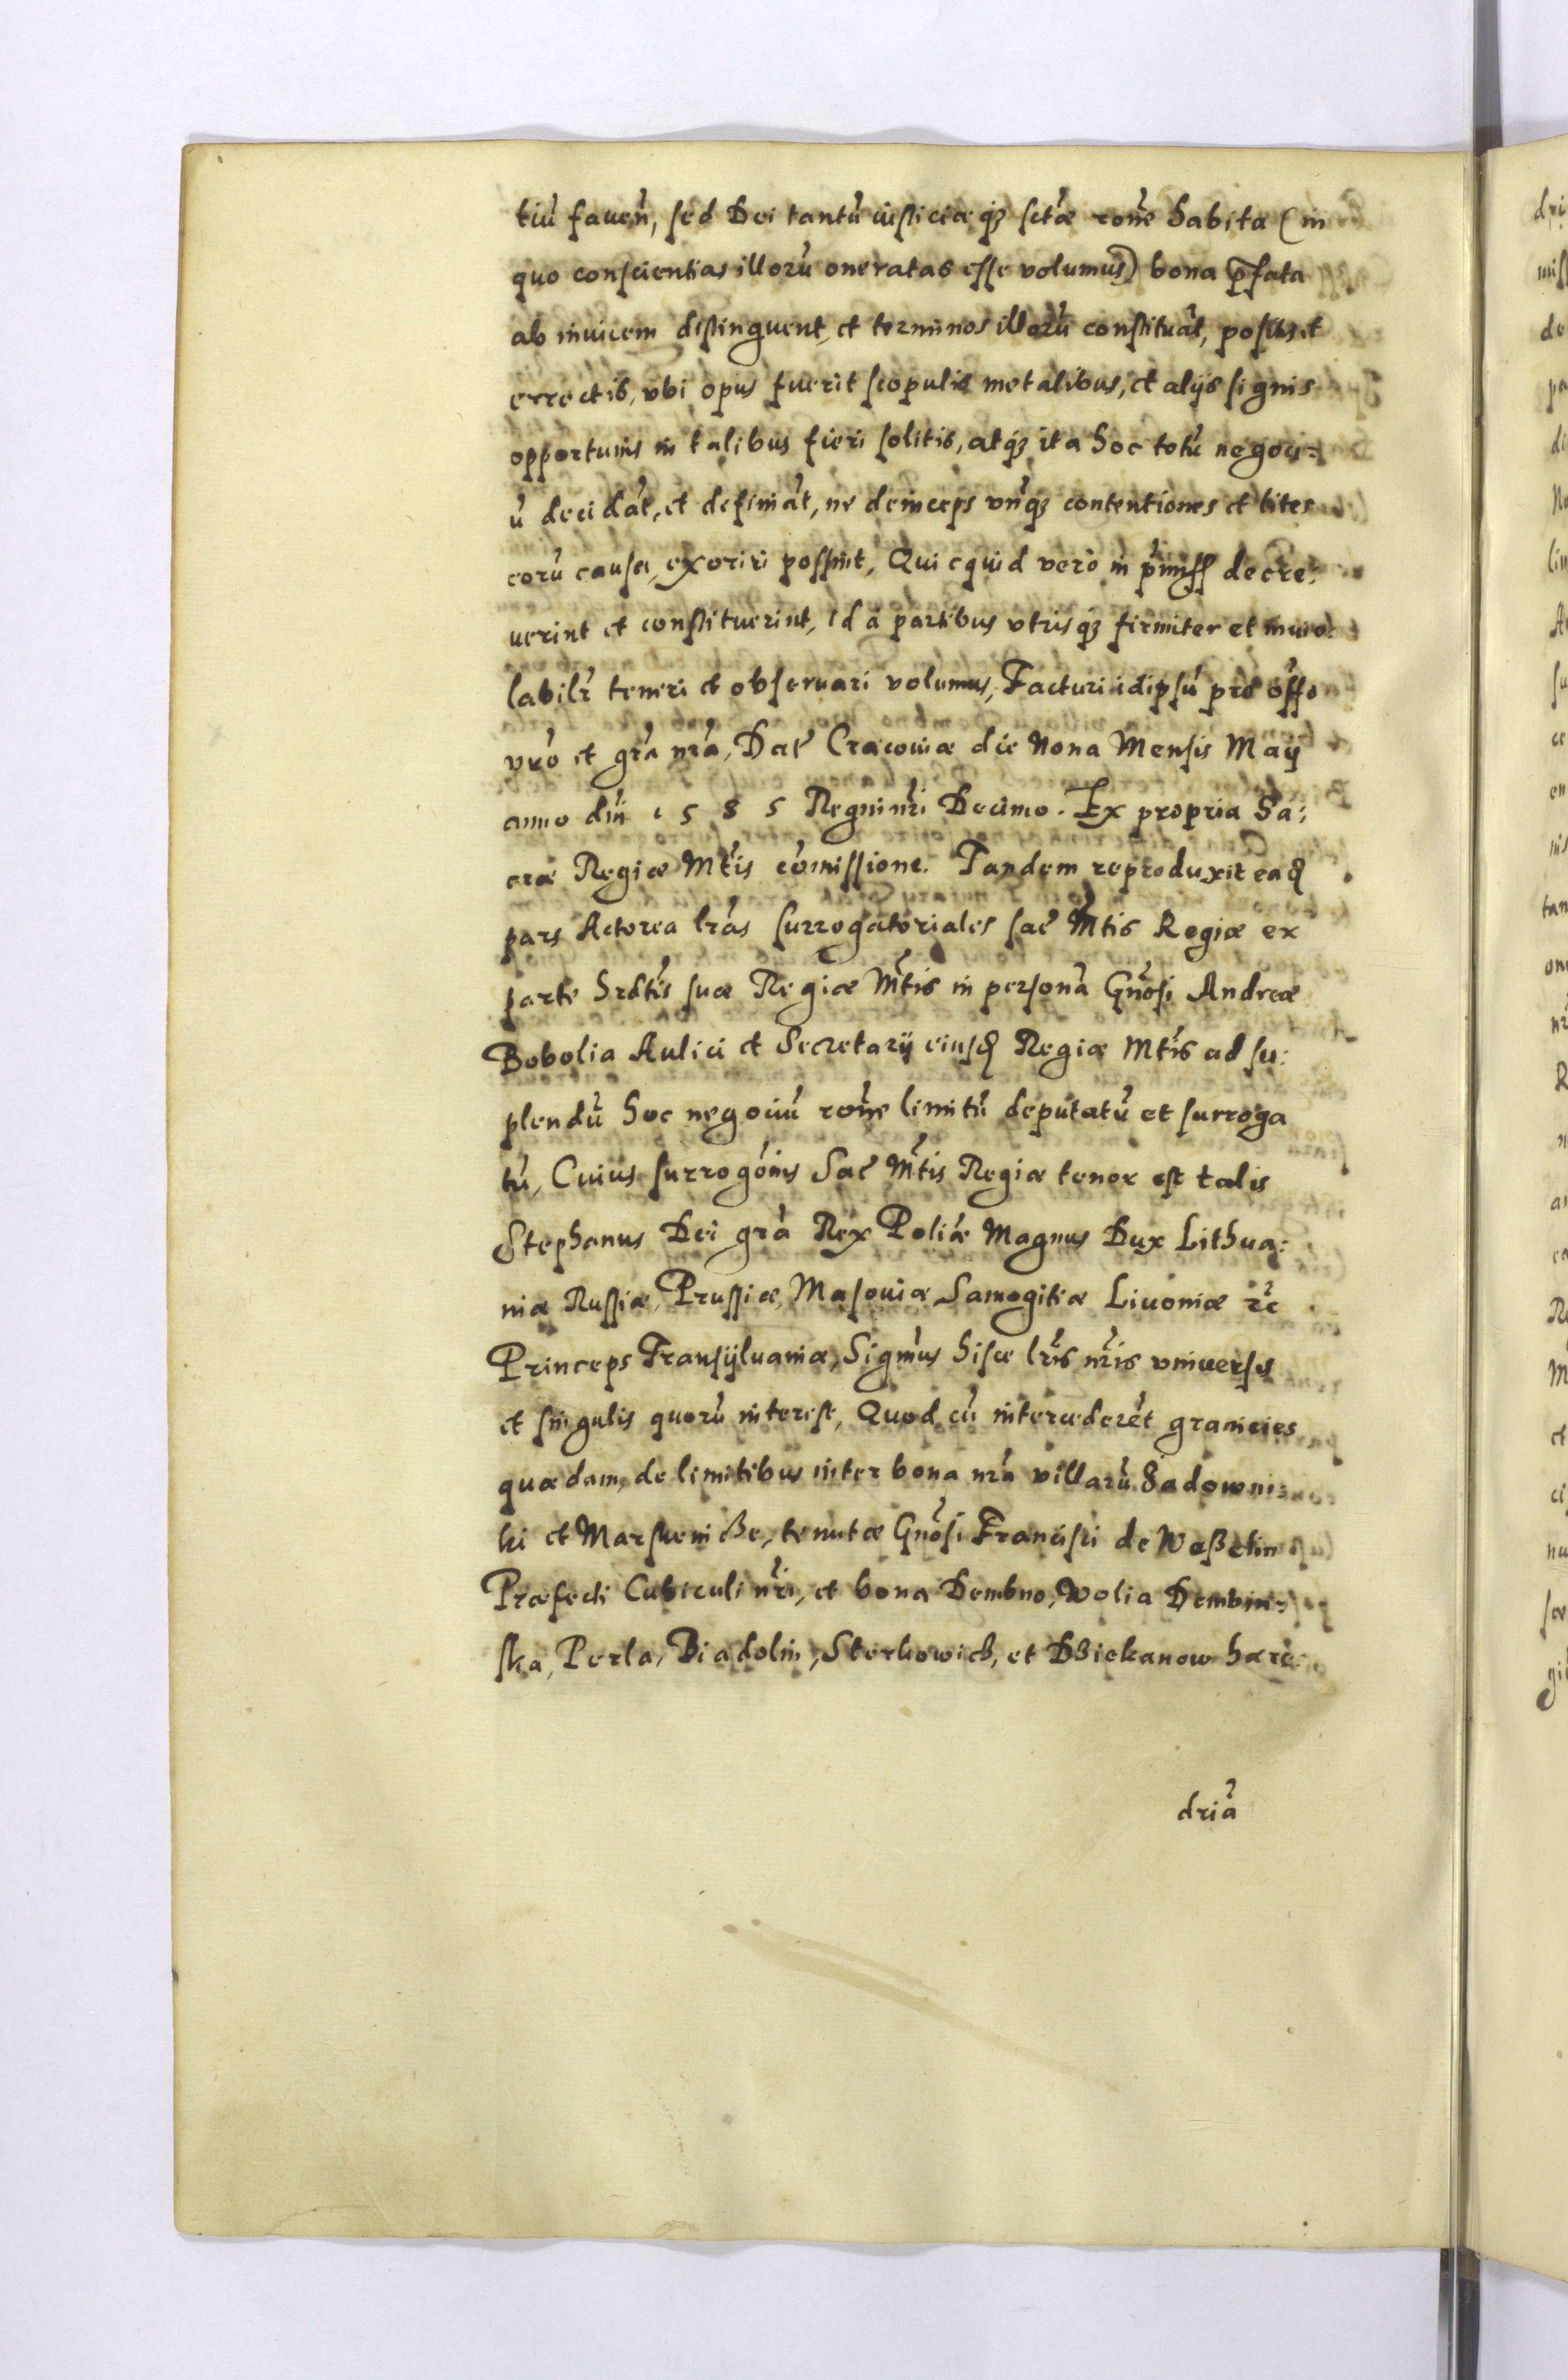 tiũ faueñ, sed Dei tantũ iusticiæqz sctæ rone habita (in
quo conscientias illorũ oneratas esse volumus) bona pfata
ab inuicem distinguent, et terminos illorũ constituãt, positis et
errectis, vbi opus fuerit scopulis metalibus, et alijs signis
opportunis in talibus fieri solitis, atqz ita hoc totũ negoci:
ũ decidãt, et definiãt, ne deinceps vnqz contentiones et lites
eorũ causa, exoriri possint, Quicquid vero in pmiss decre:
uerint et constituerint, id a partibus vtrisqz firmiter et inuio:
labilr teneri et obseruari volumus, Facturi idipsũ pro offo
vro et gra nra, Dat Cracouiæ die Nona Mensis Maij
anno dni 1585 Regni nri Decimo. Ex propria Sa:
cræ Regiæ Mtis comissione. Tandem reproduxit ead
pars Actorea lras surrogatoriales sac Mtis Regiæ ex
parte hrdtis suæ Regiæ Mtis in personã Gnosi Andreæ
Bobolia Aulici et Secretarij eiusd Regiæ Mtis ad su:
plendũ hoc negociũ rone limitũ deputatũ et surroga
tũ, Cuius surrogonis Sac Mtis Regiæ tenor est talis
Stephanus Dei gra Rex Poliæ Magnus Dux Lithua:
niæ Russiæ, Prussiæ, Masouiæ Samogitiæ Liuoniæ &c
Princeps Transyluaniæ, Sigmus hisce lris nris vniuersis
et singulis quorũ interest, Quod cũ intercederẽt granicies
quædam, de limitibus inter bona nra villarũ Sadowni:
ki et Marszeniße, tenutæ Gnosi Francisci de Weßelin
Præfecti Cubiculi nri, et bona Dembno, Wolia Dembin:
ska, Perla, Biadolin, Sterkowicz, et Dziekanow hære:
dria